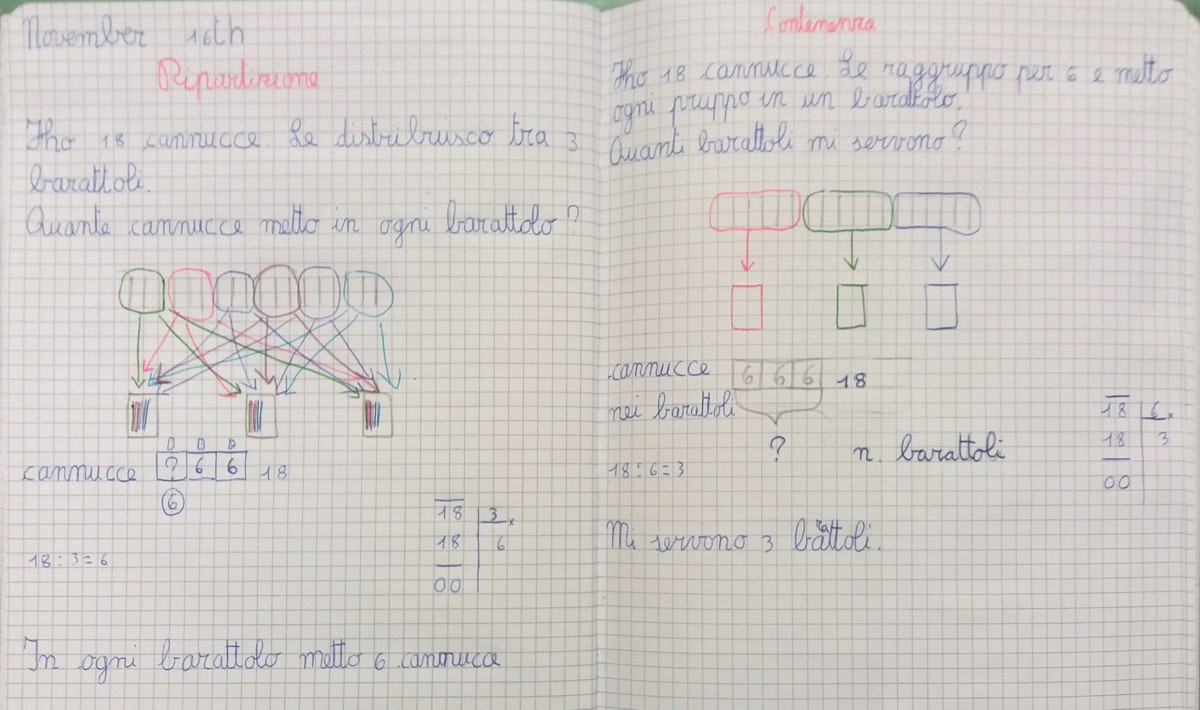 November 16th
Ripartizione
Ho 18 cannucce Le distribuisco tra 3
barattoli.
Quante cannucce metto in ogni barattolo?
B B B
cannucce ? 6 6 18
6
18 3 x
18 6
00
18 : 3 = 6
In ogni barattolo metto 6 cannucce
Contenenza
Ho 18 cannucce. Le raggruppo per 6 e metto
ogni gruppo in un barattolo.
Quanti barattoli mi servono?
cannucce 6 6 6 18
nei barattoli
? n. barattoli
18 : 6 = 3
18 6 x
18 3
00
Mi servono 3 barattoli.